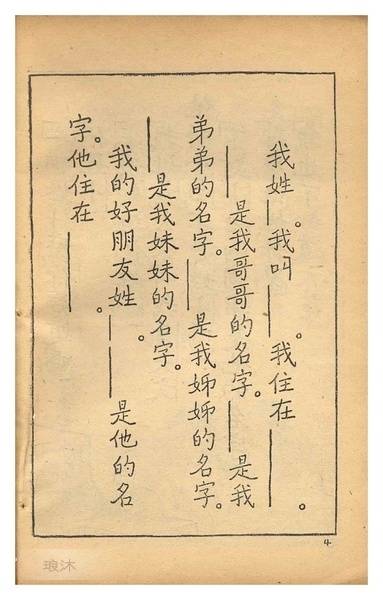 我姓__。我叫____。我住在____。
____是我哥哥的名字。____是我
弟弟的名字。____是我姊姊的名字。
____是我妹妹的名字。
我的好朋友姓__。____是他的名
字。他住在____。
4
琅沐